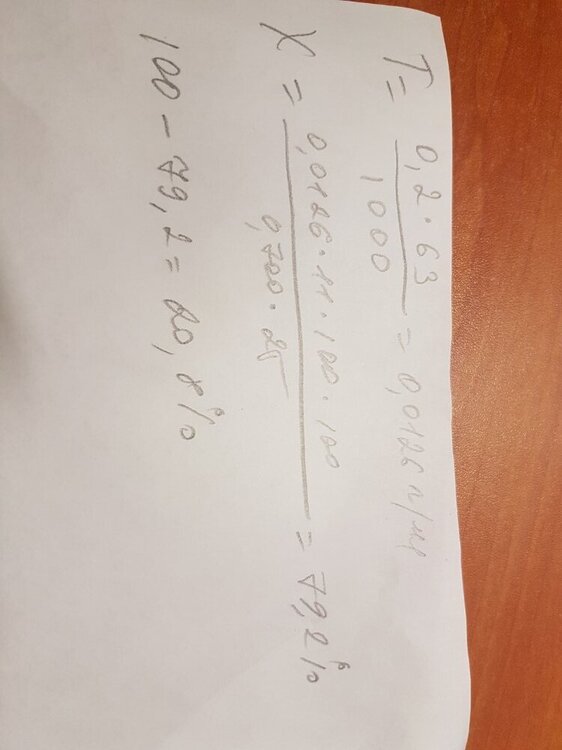 T = 0,2 · 63 / 1000 = 0,0126 г/мл
X = 0,0126 · 11 · 100 · 100 / 0,700 · 25 = 79,2%
100 - 79,2 = 20,8%